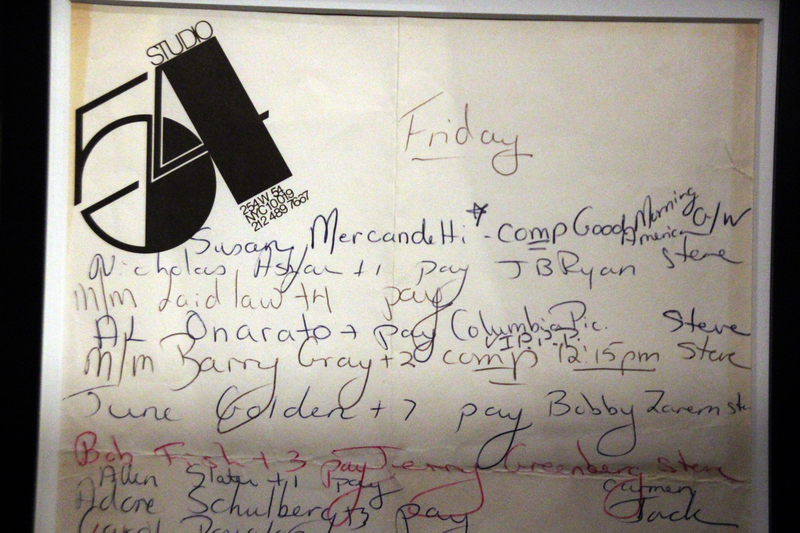 STUDIO
54
254 W. 54
NYC 10019
212 489 7667
Friday
Susan Mercandetti - comp Good Morning America G/W
Nicholas +1 pay JB Ryan Steve
M/m Laidlaw +4 pay
Al Onarato + pay Columbia Pic. Steve
V.I.P.
M/m Barry Gray +2 comp 12:15pm Steve
June Golden + 7 pay Bobby Zarem St
Bob +3 pay Jerry Greenberg Steve
Allen Slater +1 pay Carmen
Schulberg +3 pay Jack
Carol